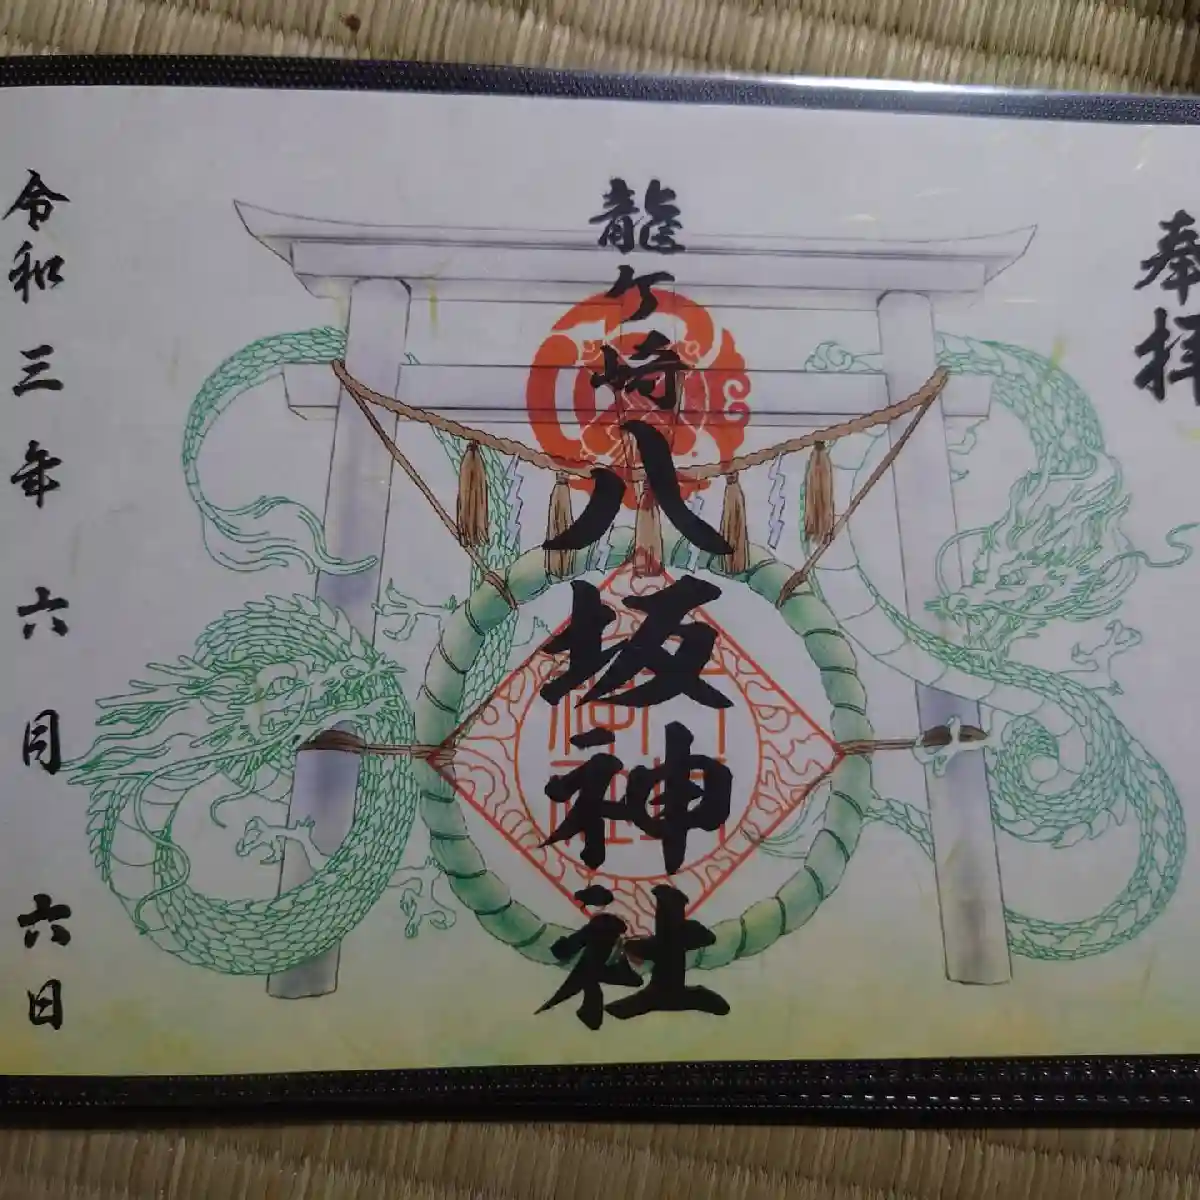 奉拝
龍ケ崎八坂神社
令和三年六月六日